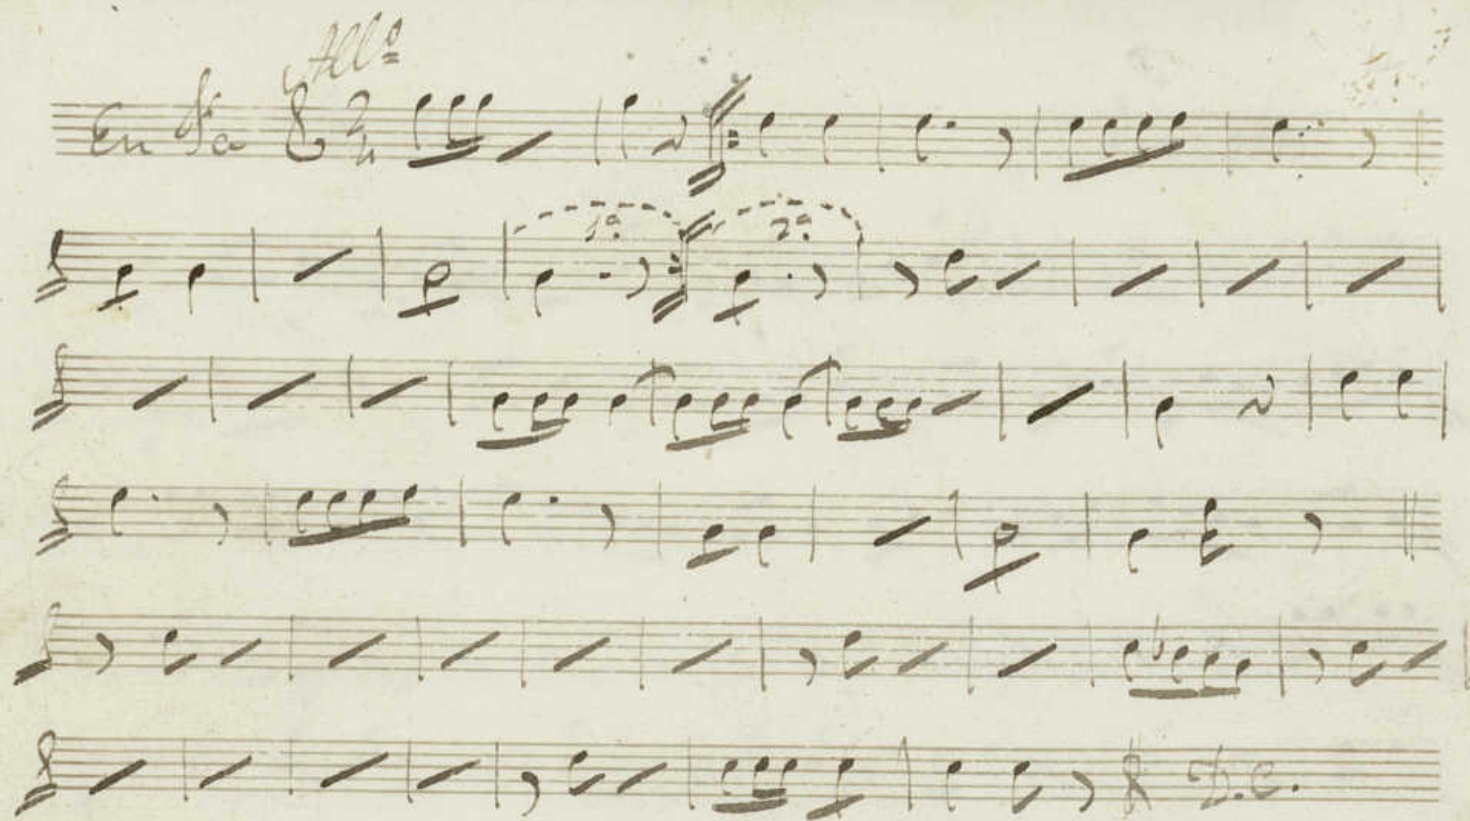 Allo
En Fa 2/4
1a. 2a.
D.C.